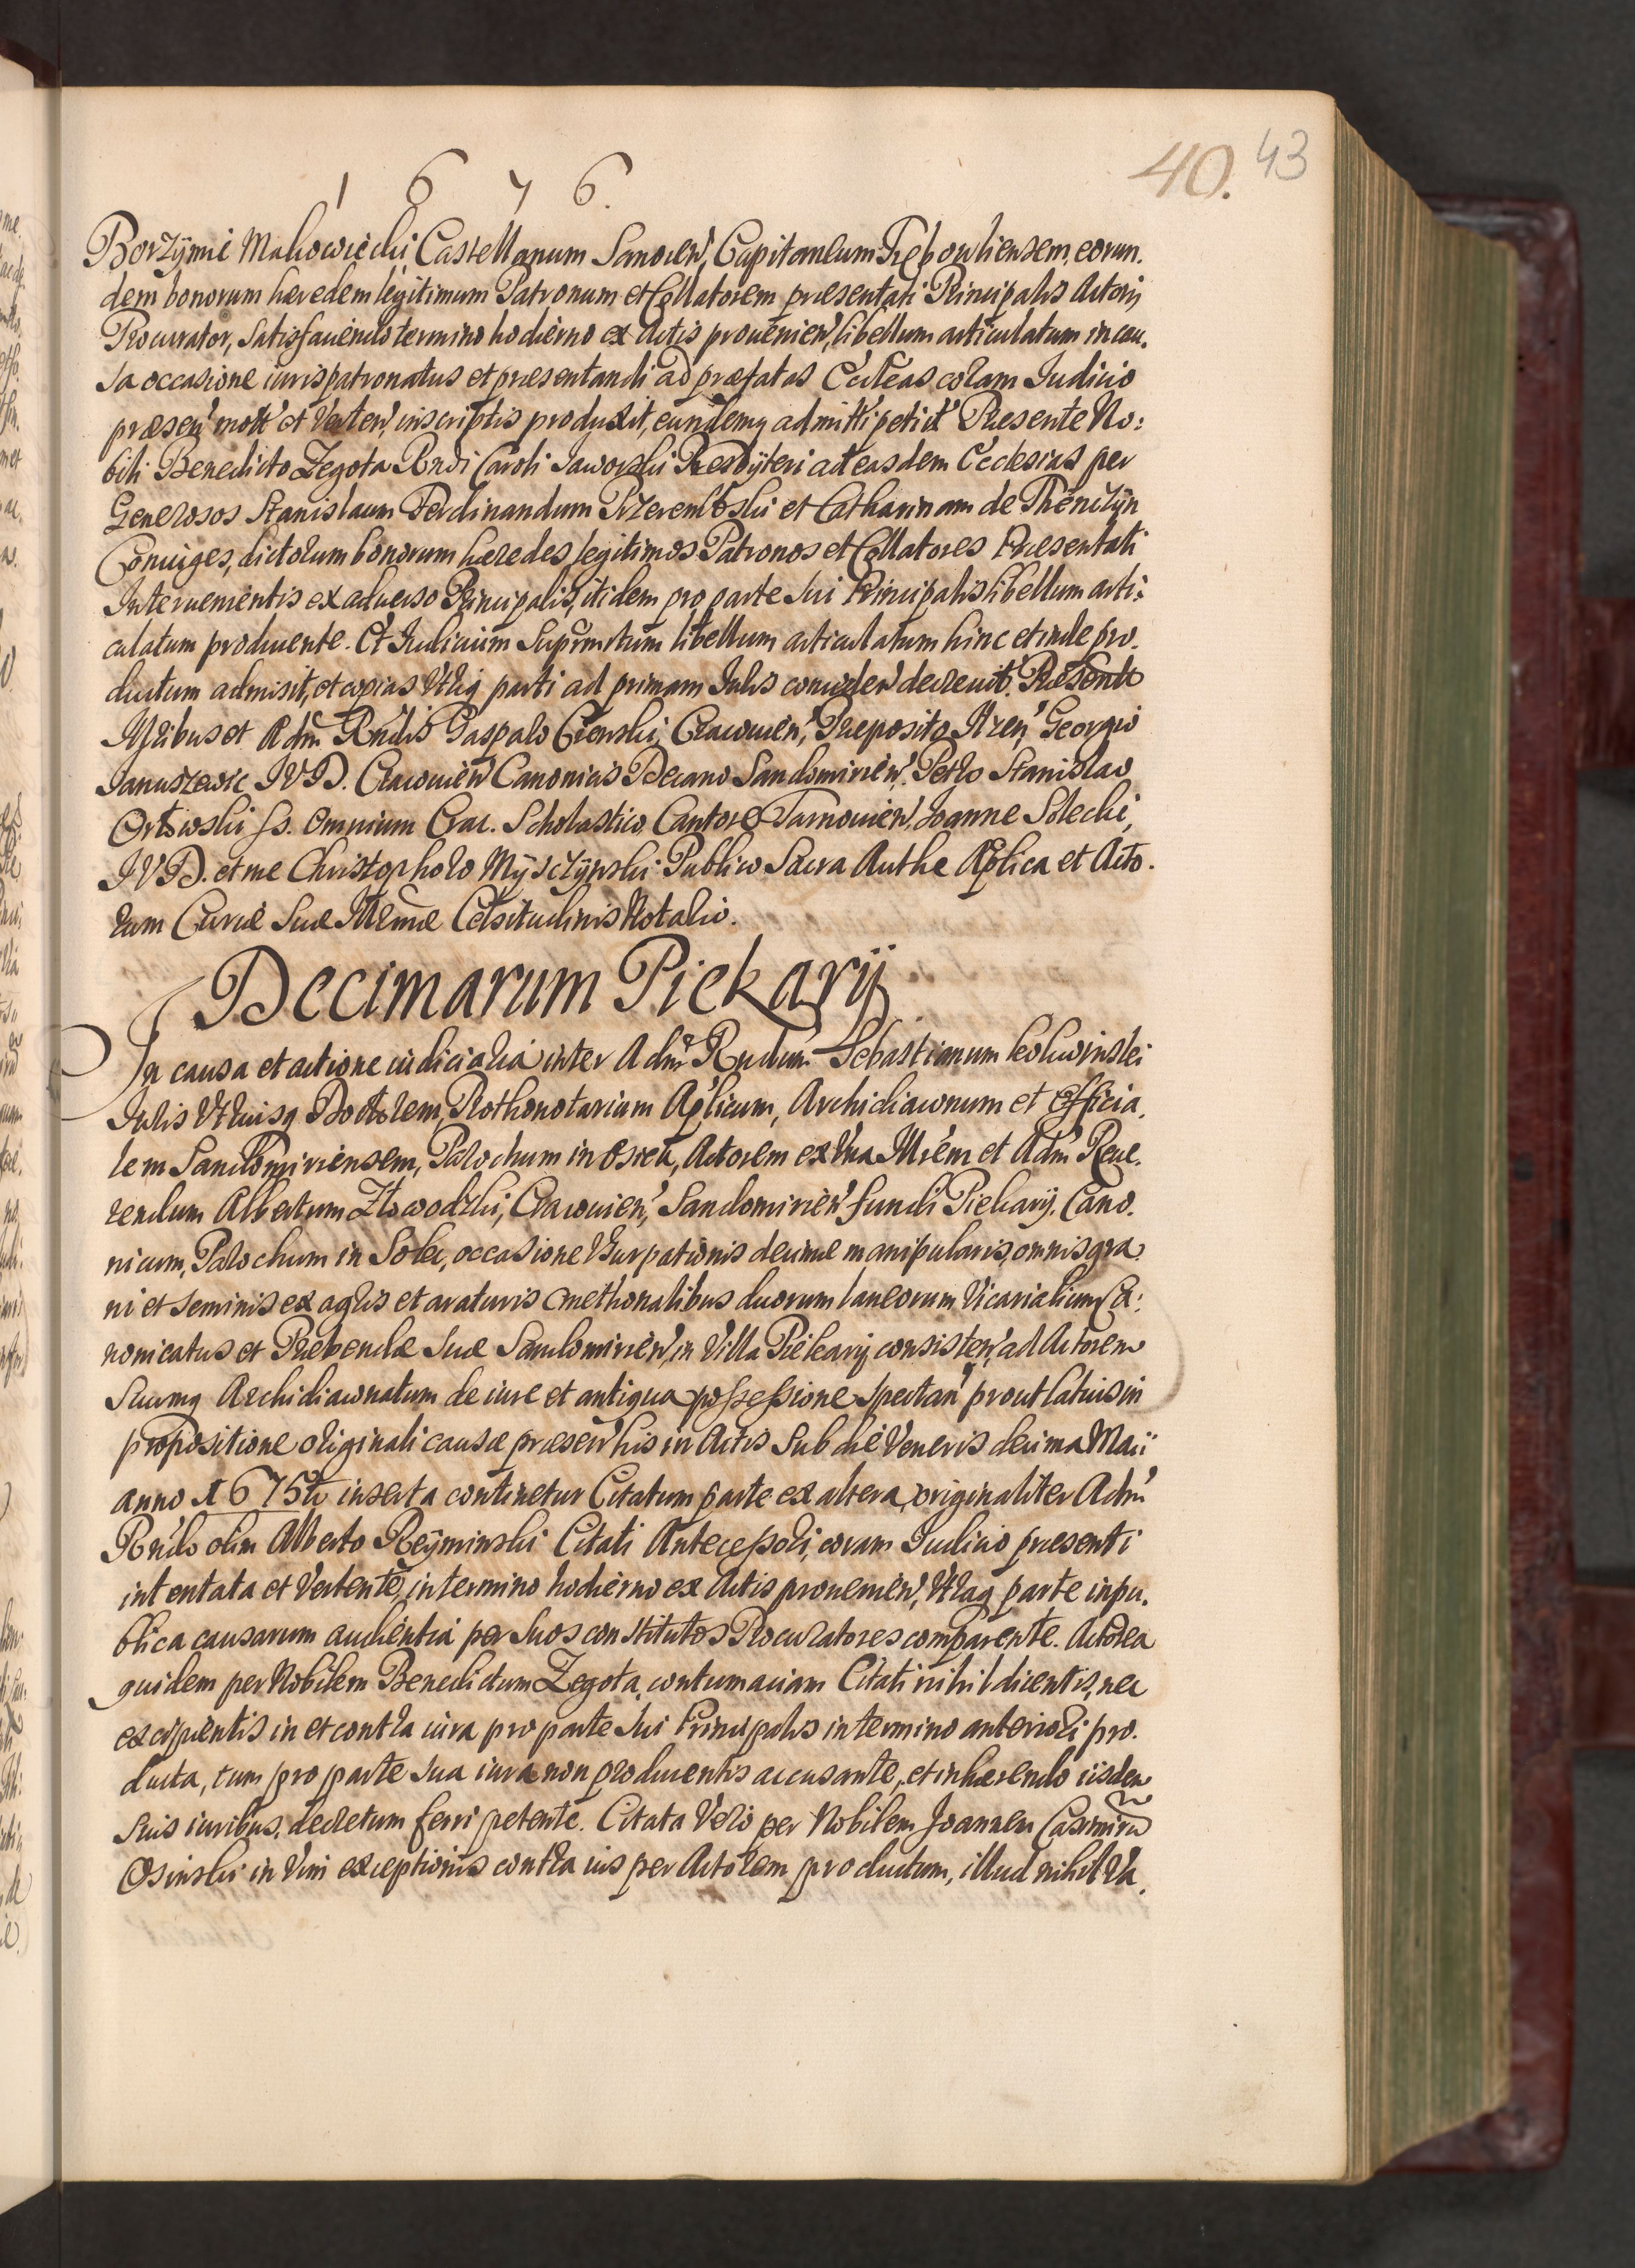 1676.
40. 43
Borzymie Makowiecki Castellanum Sanocien, Capitaneum Trebowliensem, eorun.
dem bonorum hæredem legitimum Patronum et Collatorem præsentati Principalis Actoris
Procurator, Satisfaciendo termino hodierno ex Actis provenien, libellum articulatum in cau.
sa occasione iurispatronatus et præsentandi ad præfatas Eccleas coram Iudicio
præsen mott et Verten, inscriptis produxit, eundemq admitti petiit Presente No:
bili Benedicto Zegota Rndi Caroli Jaworski Presbyteri ad easdem Ecclesias per
Generosos Stanislaum Ferdinandum Przerembski et Catharinam de Thenczyn
Coniuges, dictorum bonorum hæredes legitimos Patronos et Collatores Præsentati
Intervenientis ex adverso Principalis, itidem pro parte sui Principalis libellum arti:
culatum producente. Et Iudicium Suprmctum libellum articulatum hinc et inde pro.
ductum admisit, et copias Vtriq parti ad primam Iuris conceden decrevit. Præsentt
Illribus et Adm Rndis Gaspare Cienski, Cracovien, Preposito Ilzen, Georgio
Januszewic IVD. Cracovien Canonicis Decano Sandomirien, Petro Stanislao
Orłowski ss. Omnium Crac. Scholastico, Cantore Tarnovien, Joanne Stecki,
IVD. et me Christophoro Mysczynski Publico Sacra Authe Aplica et Acto.
rum Curiæ Suæ Illmæ Celsitudinis Notario.
Decimarum Piekary
In causa et actione iudiciaria inter Adm Rndum Sebastianum Kokwinski
Iuris Vtriusq Doctorem, Prothonotarium Aplicum, Archidiaconum et Officia.
lem Sandomiriensem, Parochum in Osiek, Actorem ex Vna Illrem et Adm Reve.
rendum Albertum Złowodzki, Cracovien, Sandomirien fundi Piekary, Cano.
nicum, Parochum in Solec, occasione Vsurpationis decimæ manipularis, omnis gra
ni et seminis ex agris et araturis Cmethonalibus duorum laneorum Vicarialium Ca:
nonicatus et Præbendæ suæ Sandomirien, in Villa Piekary consisten, ad Actorem
Suumq Archidiaconatum de iure et antiqua possessione spectan prout latius in
propositione originali causæ præsen his in Actis Sub die Veneris decima Maii
anno 1675to inserta continetur Citatum parte ex altera, originaliter Adm
Rndo olim Alberto Reyminski Citati Antecessori, coram Iudicio præsenti
intentata et Vertente, in termino hodierno ex Actis provenien, Vtraq parte inpu.
blica causarum audientia per suos constitutos Procuratores comparente. Actorea
quidem per Nobilem Benedictum Zegota, contumaciam Citati nihil dicentis, nec
excipientis in et contra iura pro parte sui Principalis in termino anteriori pro.
ducta, tum pro parte sua iura non producentis accusante, et inhærendo iisdem
suis iuribus, decretum ferri petente. Citata Vero per Nobilem Joannem Casimirū
Osinski in Vim exceptionis contra ius per Actorem productum, illud nihil Va.